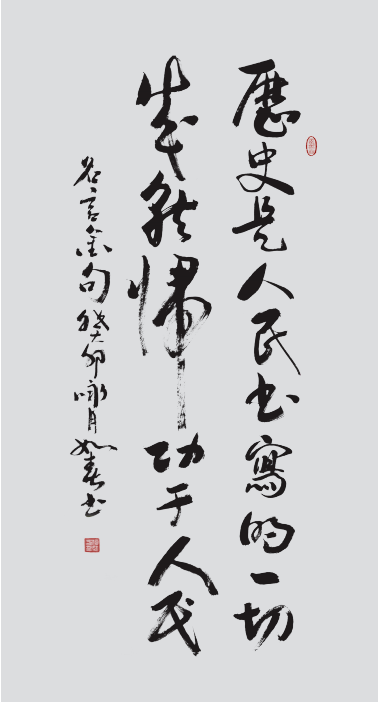 歷史是人民书寫的一切
成就歸功于人民
名言金句癸卯咏月如春书